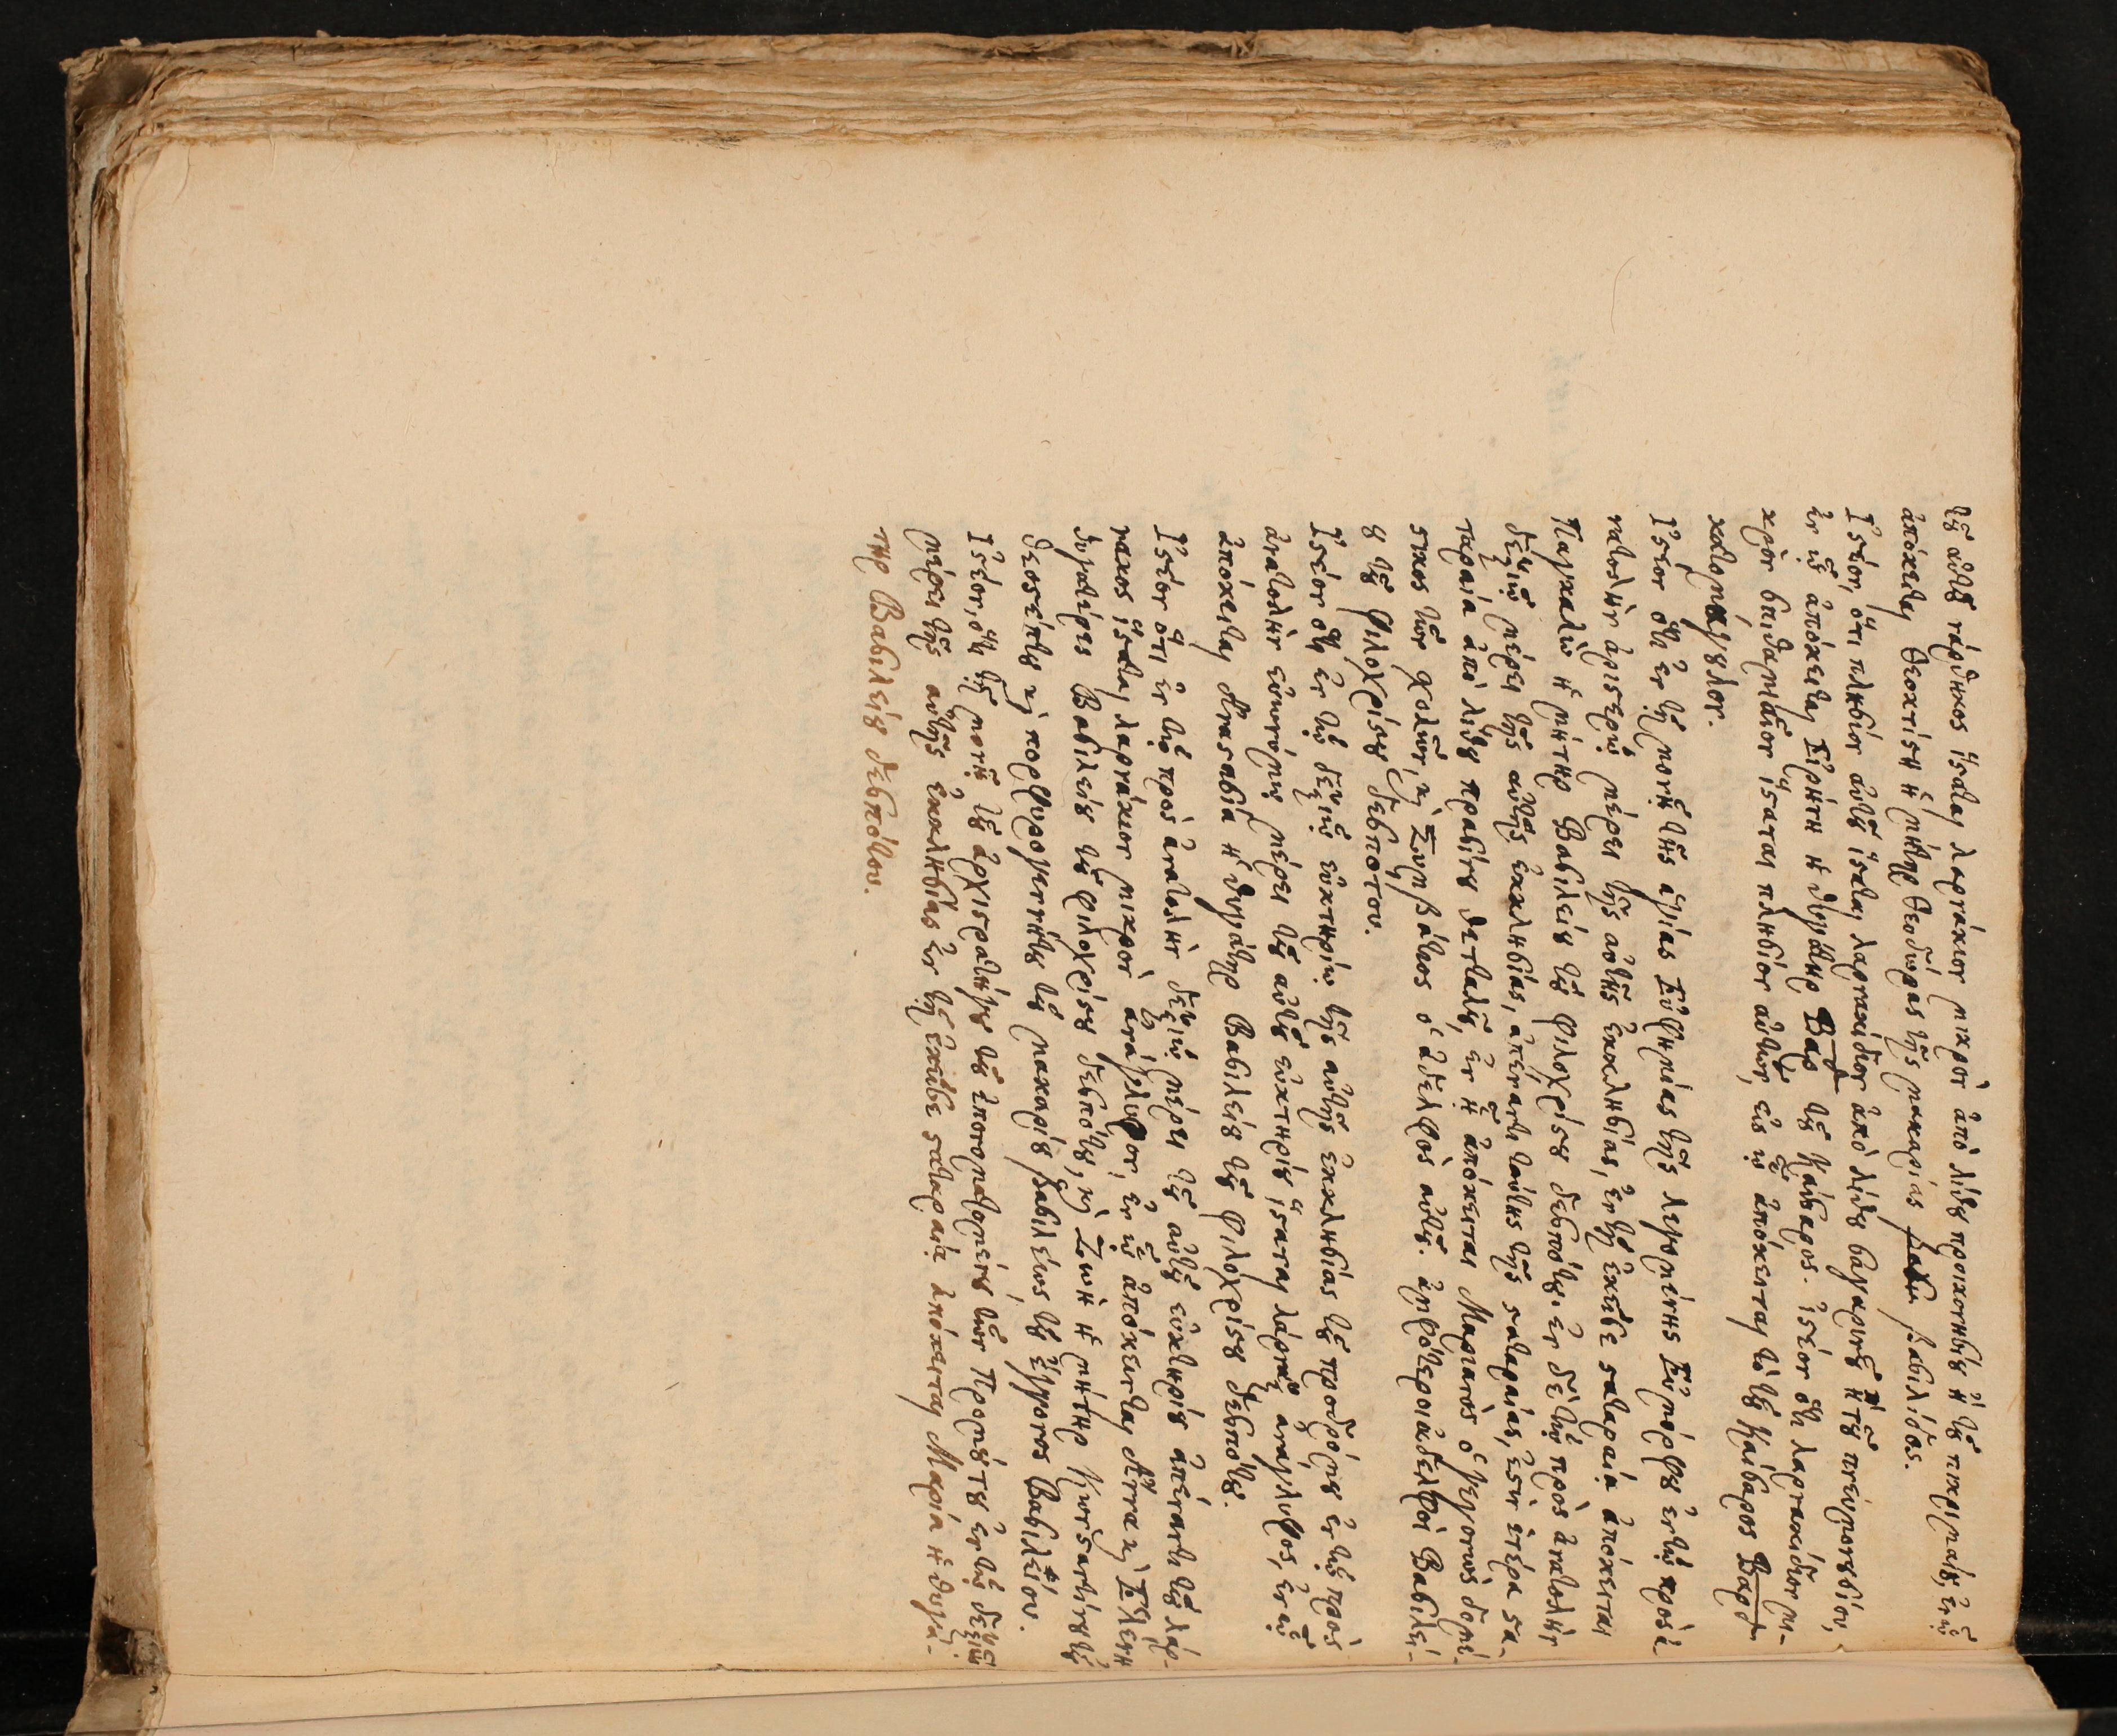 τοῦ αὐτοῦ νάρθηκος ἵσταται λαρνάκιον μικρὸν ἀπὸ λίθου προικονησίου ἢ τοῦ πικριματου, ἐν ᾧ
ἀπόκειται Θεοκτίστη ἡ μήτηρ Θεοδώρας τῆς μακαρίας βασιλίδος.
Ἰστέον, ὅτι πλησίον αὐτοῦ ἵσταται λαρνακίδιον ἀπὸ λίθου σαγαρινοῦ ἤτου πνευμονουσίου,
ἐν ᾧ ἀπόκειται Εἰρήνη ἡ θυγάτηρ Βαρδ τοῦ Καίσαρος. ἰστέον ὅτι λαρνακίδιον μι-
κρὸν σπιθαμιαῖον ἵσταται πλησίον αὐτῶν, ἐν ᾧ ἀπόκειται τὸ τοῦ Καίσαρος Βαρδ
κατομάγουλον.
Ἰστέον ὅτι ἐν τῇ μονῇ τῆς ἁγίας Εὐφημίας τῆς λεγομένης Εὐμόρφου ἐν τῷ πρὸς ἀ-
νατολὴν ἀριστερῷ μέρει τῆς αὐτῆς ἐκκλησίας, ἐν τῇ ἐκεῖσε σταταραίᾳ ἀπόκειται
Παγκαλὼ ἡ μήτηρ Βασιλείου τοῦ φιλοχρίστου δεσπότου. ἐν δὲ τῷ πρὸς ἀνατολὴν
δεξιῷ μέρει τῆς αὐτῆς ἐκκλησίας, ἀπέναντι ταύτης τῆς σταταραίας, ἐστὶν ἑτέρα στα-
ταραία ἀπὸ λίθου πρασίνου θετταλοῦ, ἐν ᾗ ἀπόκειται Μαριανὸς ὁ γεγονὼς δομέ-
στικος τῶν σχολῶν, καὶ Συμβάτιος ὁ ἀδελφὸς αὐτοῦ. ἀμφότεροι ἀδελφοὶ Βασιλεί-
ου τοῦ φιλοχρίστου δεσπότου.
Ἰστέον ὅτι ἐν τῷ δεξιῷ εὐκτηρίῳ τῆς αὐτῆς ἐκκλησίας τοῦ προδρόμου ἐν τῷ πρὸς
ἀνατολὴν εὐωνύμῳ μέρει τοῦ αὐτοῦ εὐκτηρίου ἵσταται λάρναξ ἀνάγλυφος, ἐν ᾧ
ἀπόκειται Ἀναστασία ἡ θυγάτηρ Βασιλείου τοῦ φιλοχρίστου δεσπότου.
Ἰστέον ὅτι ἐν τῷ πρὸς ἀνατολὴν δεξιῷ μέρει τοῦ αὐτοῦ εὐκτηρίου ἀπέναντι τοῦ λάρ-
νακος ἵσταται λαρνάκιον μικρὸν ἀνάγλυφον, ἐν ᾧ ἀπόκεινται Ἄννα καὶ Ἑλένη
θυγατέρες Βασιλείου τοῦ φιλοχρίστου δεσπότου, καὶ Ζωὴ ἡ μήτηρ Κωνσταντίνου τοῦ
θεοστέπτου καὶ πορφυρογεννήτου τοῦ μακαρίου βασιλέως τοῦ ἔγγονος Βασιλείου.
Ἰστέον, ὅτι τῇ μονῇ τοῦ ἀρχιστρατήγου τοῦ ἐπονομαζομένου τῶν Προμότου ἐν τῷ δεξιῷ
μέρει τῆς αὐτῆς ἐκκλησίας ἐν τῇ ἐκεῖσε σταταραίᾳ ἀπόκειται Μαρία ἡ θυγά-
τηρ Βασιλείου δεσπότου.